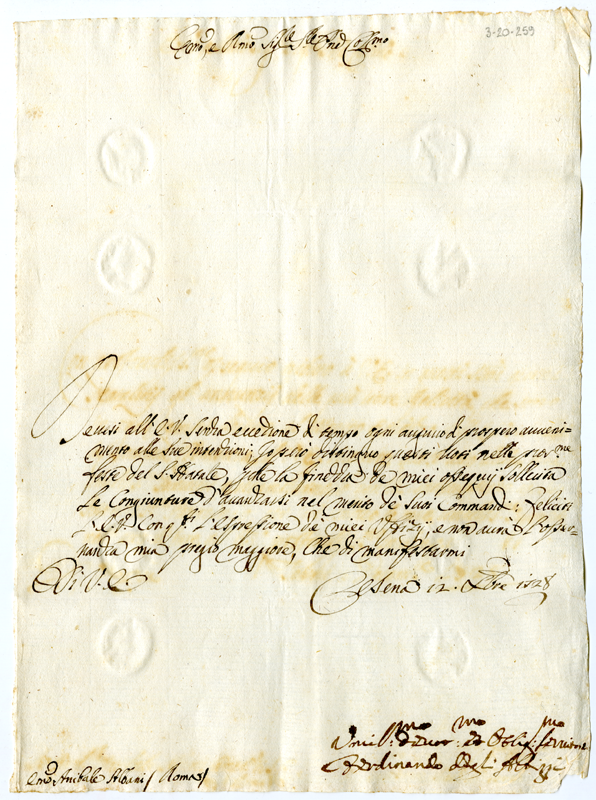 3-20-259
Emo, e Rmo Sig.re Colmo
Devesi all'E.V. senza eccezione di tempo ogni augurio di prospero avveni=
mento alle sue intenzioni; Io però distinguo questi Voti nelle pros.me
feste del S. Natale, che la finezza de miei ossequij sollecita
Le Congiunture d'avanzarsi nel merito de Suoi Commandi: felicit
L'E.V. Con q.ti L'espressione de miei Uffizij, e non avrà l'osser=
vanza mia pregio maggiore, Che di manifestarmi
Di V.E.
Cesena 12. Xbre 1728
Umil.mo Devot.mo et Oblig.mo servitore
Ferdinando degli
Emo Anibale Albani / Roma /